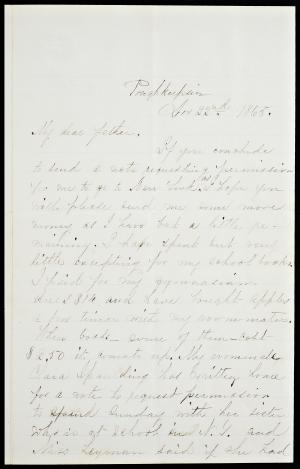 Poughkeepsie
Nov 22nd 1865.
My dear father.
If you conclude
to send a note requesting permission
for me to go to New York I hope you
will please send me some more
money as I have but a little re-
maining. I have spent but very
little excepting for my school books.
I paid for my gymnasium
dress $14 and have bought apples
a few times with my room-mates.
books some of them cost
$2.50 it counts up. My roommate
Clara Spaulding has written home
for a note to request permission
to spend Sunday with her sister
who is at school in N.Y. and
Miss Lyman said if she had